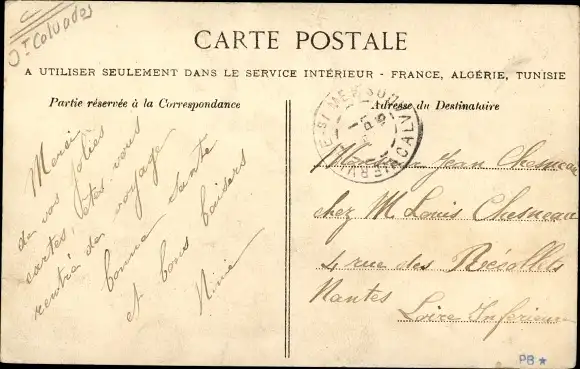 Jt Calvados
CARTE POSTALE
A UTILISER SEULEMENT DANS LE SERVICE INTÉRIEUR - FRANCE, ALGÉRIE, TUNISIE
Partie réservée à la Correspondance
Merci
de vos jolies
cartes, êtes vous
rentré de voyage
bonne santé
et bons baisers
Ninie
Adresse du Destinataire
Jean Chesneau
chez M. Louis Chesneau
4 rue des Récollets
Nantes
Loire Inferieure
CALV
PB ★